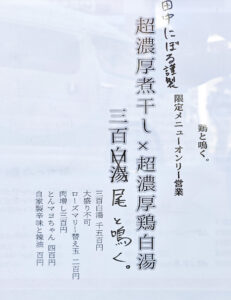 鶏と鳴く。
限定メニューオンリー営業
田中にぼる謹製
超濃厚煮干し×超濃厚鶏白湯
三百白湯 尾と鳴く。
三百白湯 千五百円
大盛り不可
ローズマリー替え玉 二百円
肉増し三百円
とんマヨちゃん 四百円
自家製辛味と辣油 百円